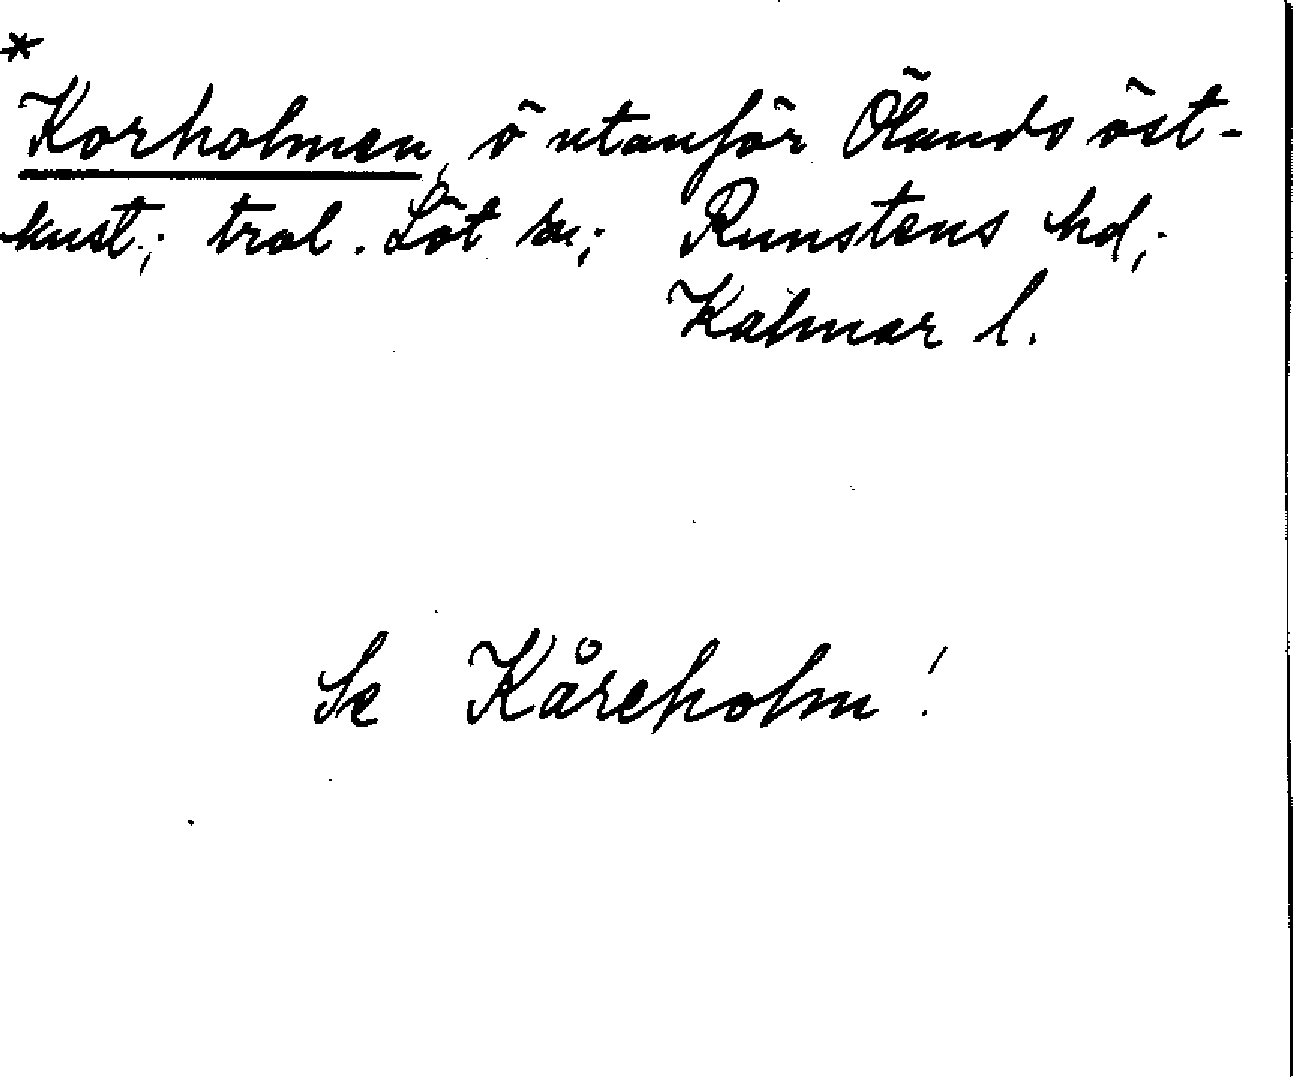 *
Korholmen, ö utanför Ölands öst-
kust; trol. Löt sn; Runstens hd;
Kalmar l.
Se Kåreholm!